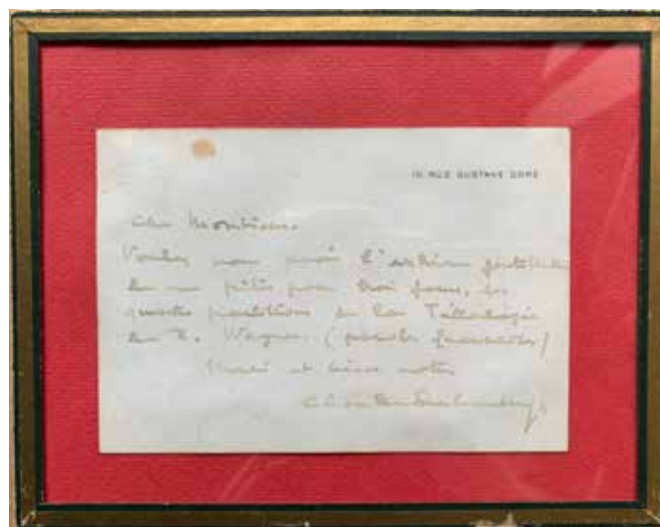 10 RUE GUSTAVE DORÉ
Cher Monsieur
Voulez vous avoir l'extrême
de me prêter pour trois jours, les
quatre partitions de la Tétralogie
de R. Wagner. (paroles françaises)
Merci et bien votre
Claude Debussy